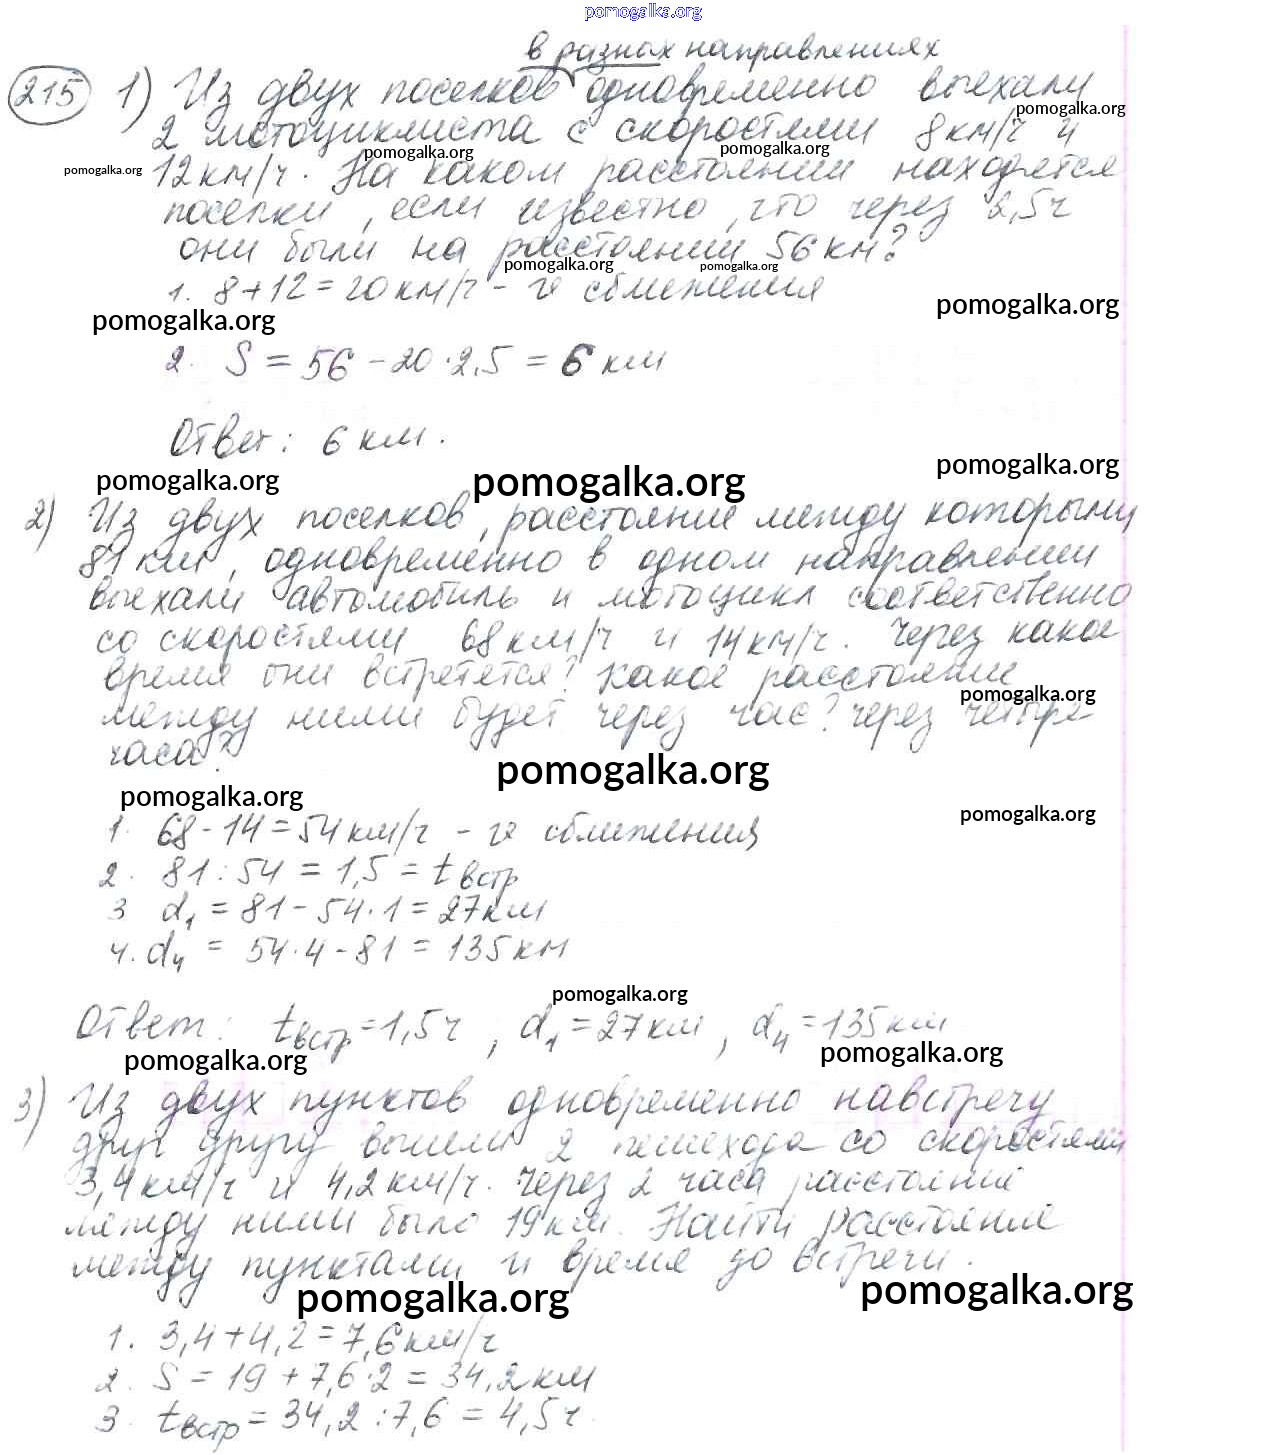 pomogalka.org
в разных направлениях
215 1) Из двух поселков одновременно выехали
pomogalka.org
2 мотоциклиста с скоростями 8 км/ч и
pomogalka.org pomogalka.org
pomogalka.org 12 км/ч. На каком расстоянии находятся
поселки, если известно, что через 2,5 ч
они были на расстоянии 56 км?
pomogalka.org pomogalka.org
1. 8 + 12 = 20 км/ч - v сближения
pomogalka.org pomogalka.org
2. S = 56 - 20 · 2,5 = 6 км
Ответ: 6 км.
pomogalka.org pomogalka.org pomogalka.org
2) Из двух поселков, расстояние между которыми
81 км, одновременно в одном направлении
выехали автомобиль и мотоцикл соответственно
со скоростями 68 км/ч и 14 км/ч. Через какое
время они встретятся? Какое расстояние
pomogalka.org
между ними будет через час? через четыре
часа?
pomogalka.org
pomogalka.org pomogalka.org
1. 68 - 14 = 54 км/ч - v сближения
2. 81 : 54 = 1,5 = t встр
3 d₁ = 81 - 54 · 1 = 27 км
4. d₄ = 54 · 4 - 81 = 135 км
pomogalka.org
Ответ: t встр = 1,5 ч, d₁ = 27 км, d₄ = 135 км
pomogalka.org pomogalka.org
3) Из двух пунктов одновременно навстречу
друг другу вышли 2 пешехода со скоростями
3,4 км/ч и 4,2 км/ч. Через 2 часа расстояние
между ними было 19 км. Найти расстояние
между пунктами и время до встречи.
pomogalka.org pomogalka.org
1. 3,4 + 4,2 = 7,6 км/ч
2. S = 19 + 7,6 · 2 = 34,2 км
3. t встр = 34,2 : 7,6 = 4,5 ч.